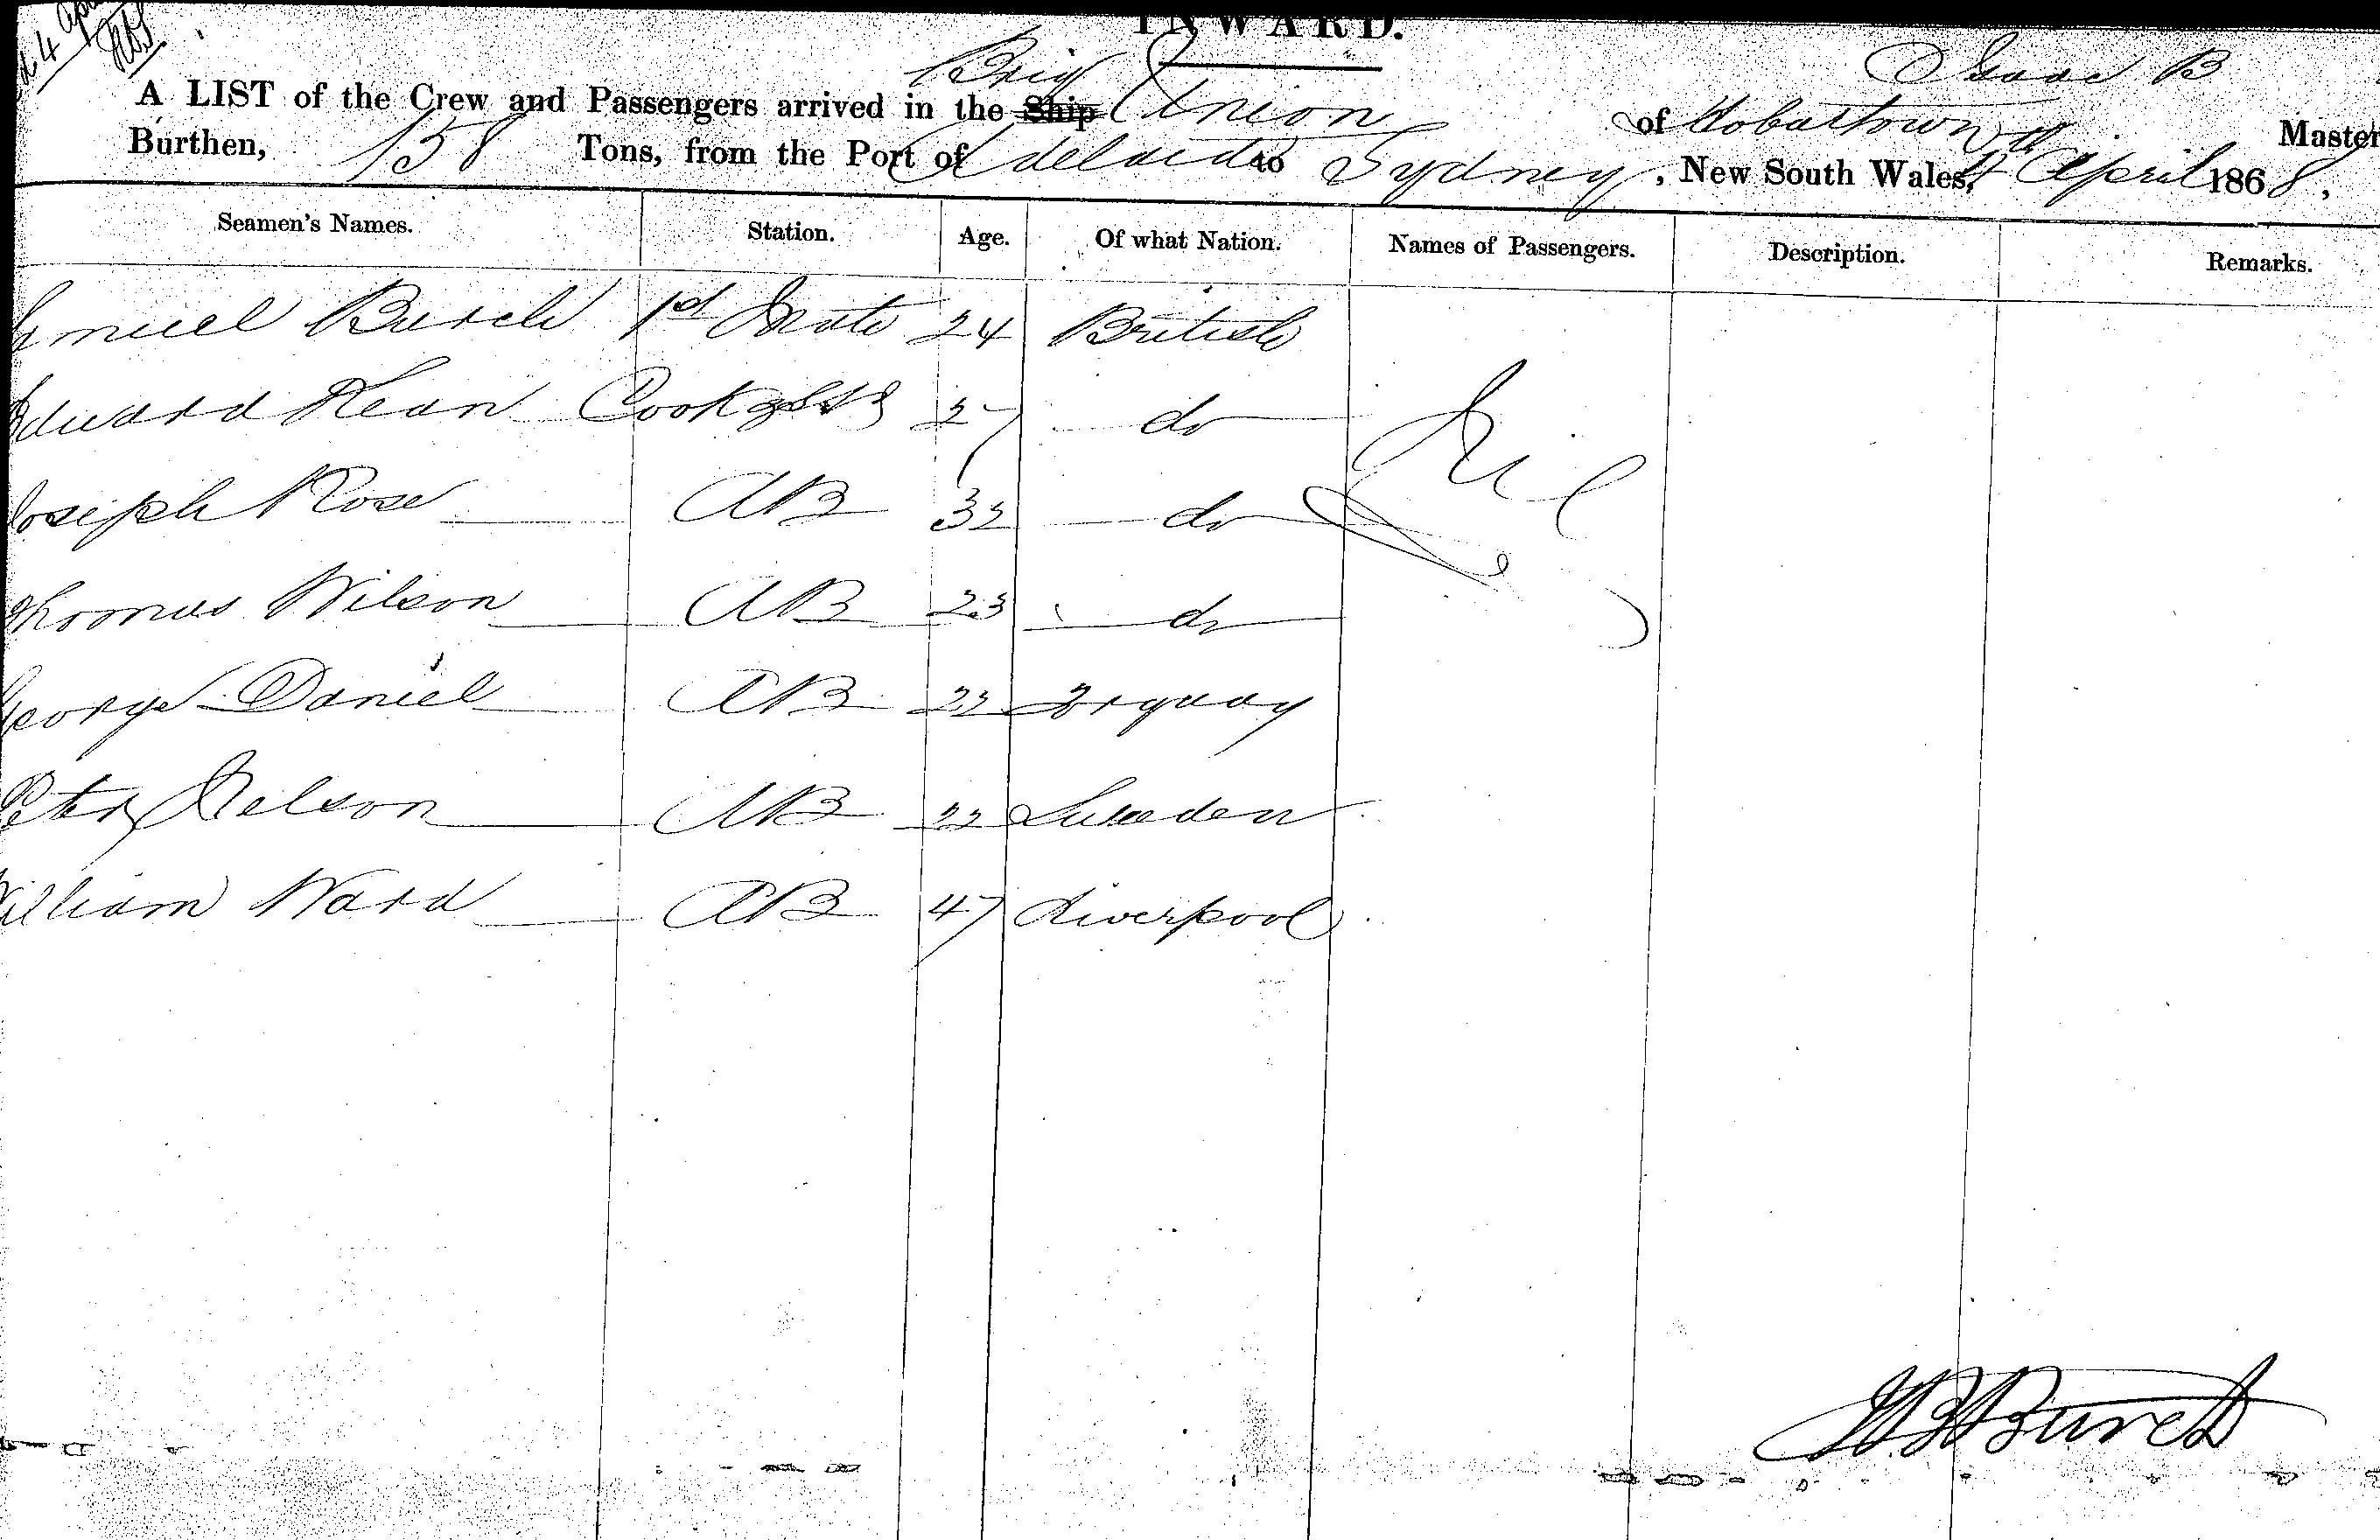 4 Apr
INWARD.
A LIST of the Crew and Passengers arrived in the Ship Brig Union of Hobartown Isaac B Master
Burthen, 158 Tons, from the Port of Adelaide to Sydney, New South Wales, 4 April 1868,
Seamen's Names. Station. Age. Of what Nation. Names of Passengers. Description. Remarks.
muel Burch 1st Mate 24 British Nil
Edward Kean Cook & 27 do
Joseph Rose AB 32 do
Thomas Wilson AB 23 do
George Daniel AB 22 Torquay
Peter Nelson AB 22 Sweeden
William Ward AB 47 Liverpool